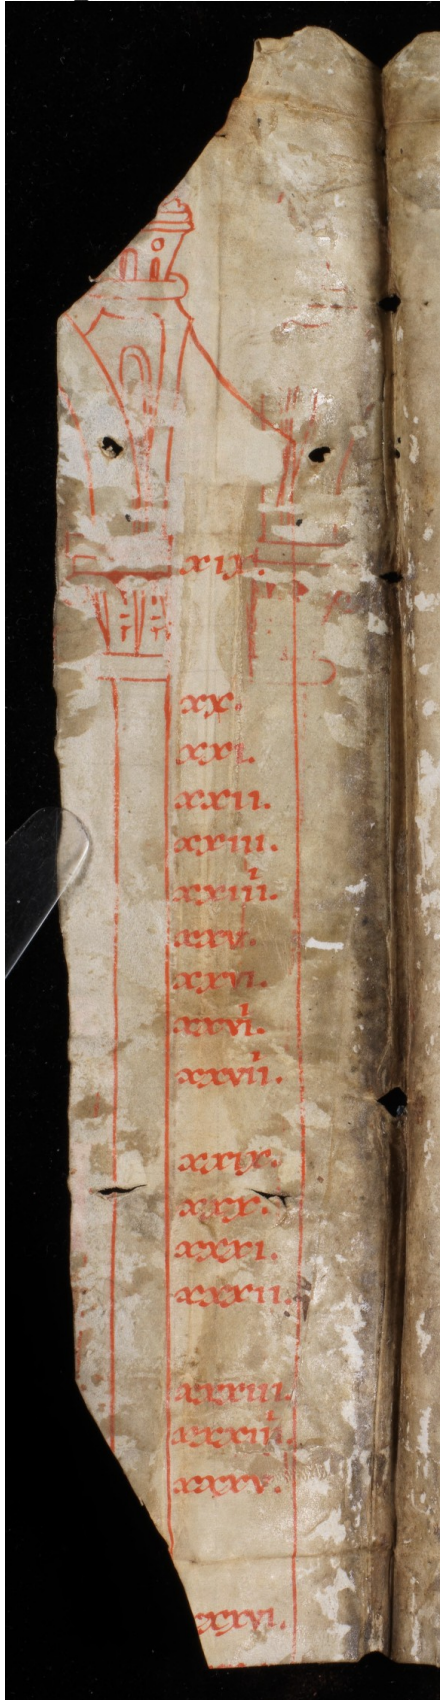 xix.
xx.
xxi.
xxii.
xxiii.
xxiiii.
xxv.
xxvi.
xxvii.
xxviii.
xxix.
xxx.
xxxi.
xxxii.
xxxiii.
xxxiiii.
xxxv.
xxxvi.